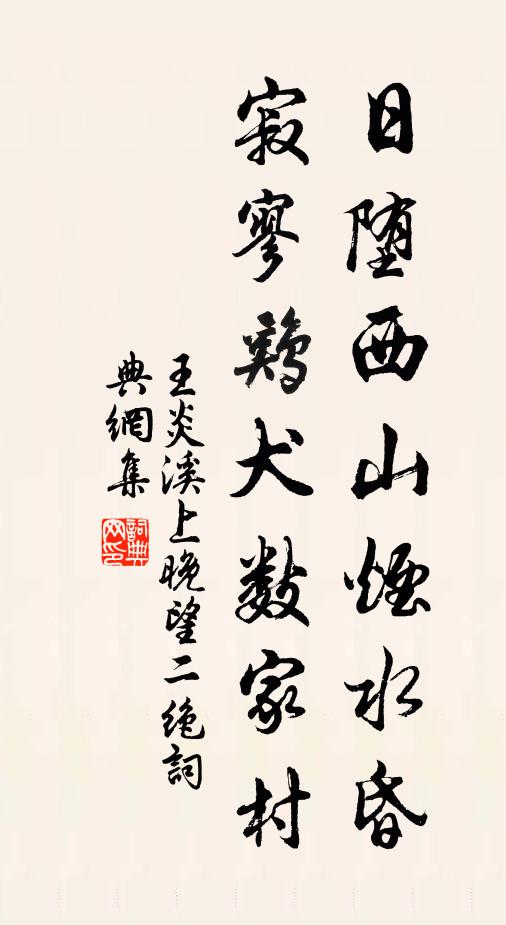 日堕西山煙水昏
寂寥鷄犬數家村
王炎溪上晚望二绝詞
典網集
詞典
网印